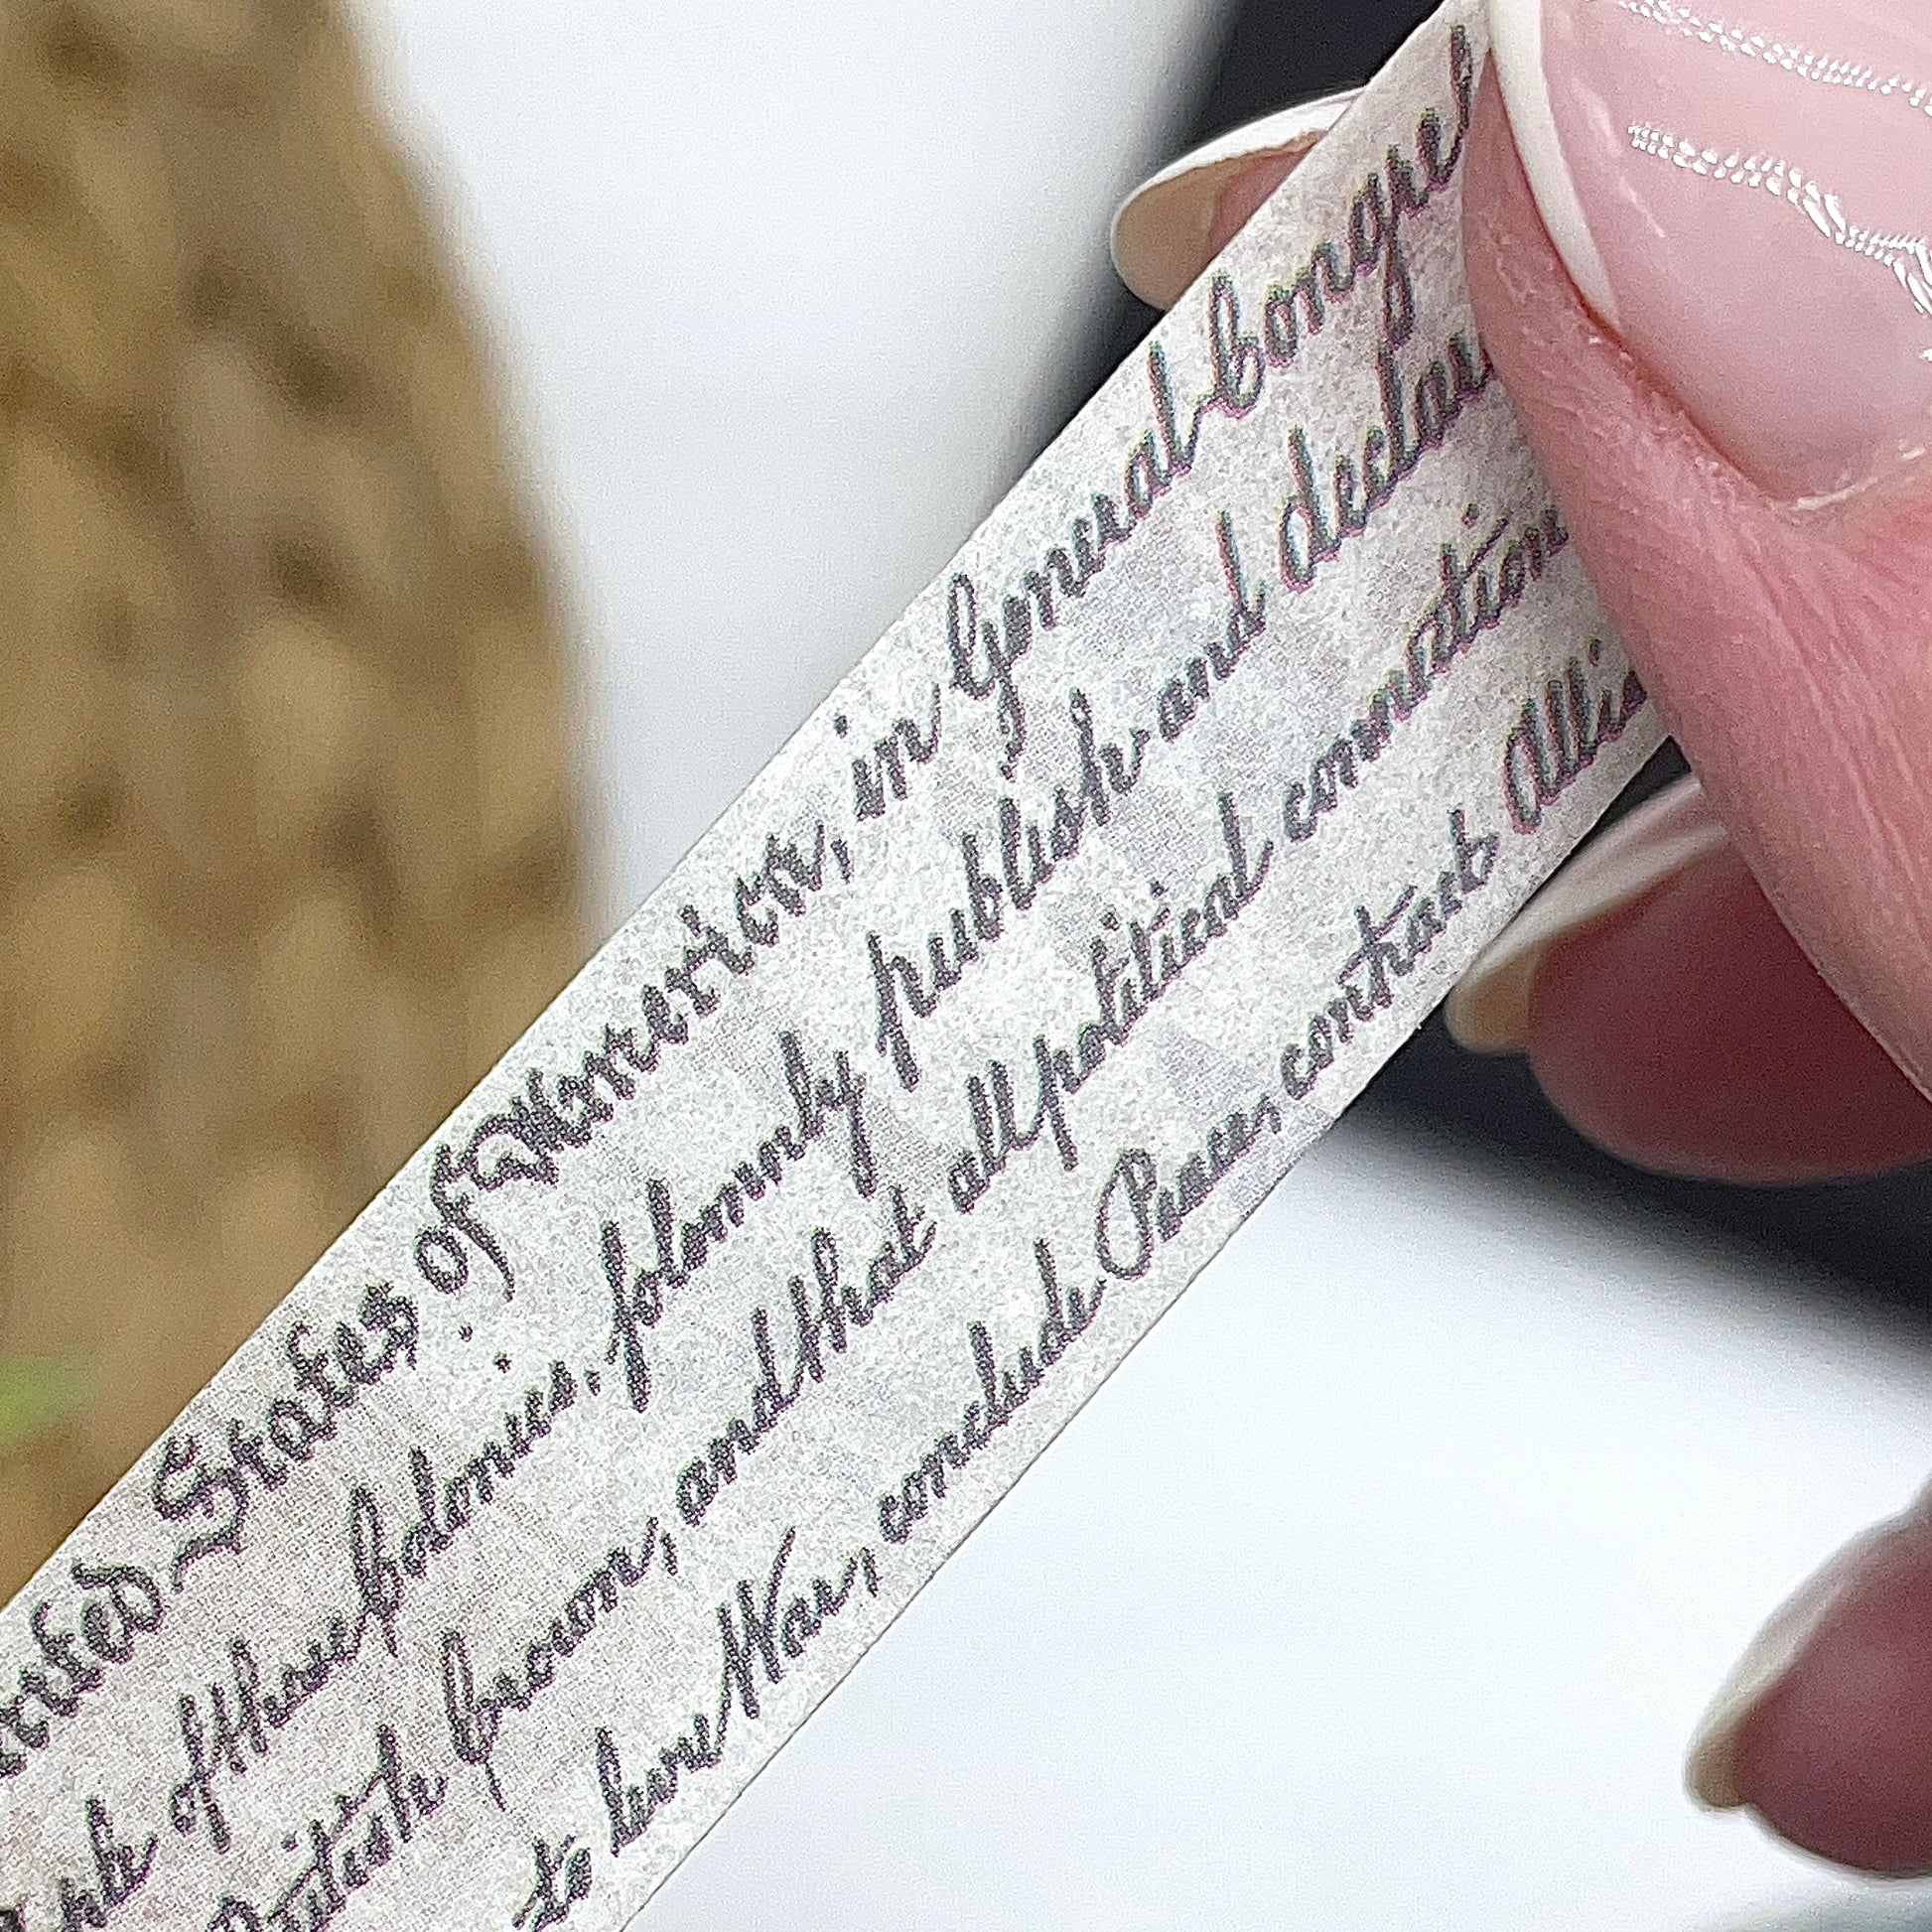 States of America, in General Congre
of these Colonies, solemnly publish and declar
British Crown, and that all political connection
to levy War, conclude Peace, contract Allia